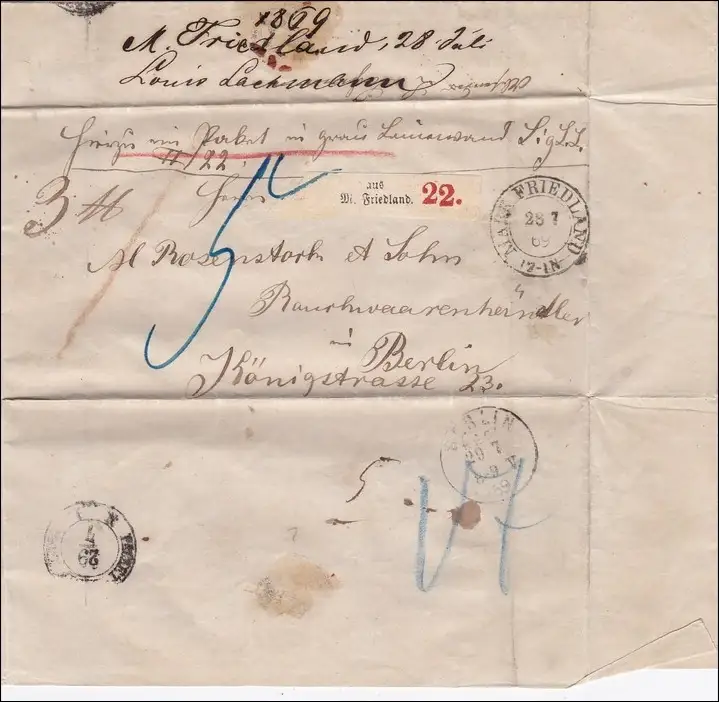 1869
M. Friedland, 28 Juli
Louis Lachmann
Hierzu ein Paket in grau Leinewand Sig L.L.
# 22.
3 tt
Herrn
aus
M. Friedland. 22.
MARK FRIEDLAND
28 7
69
12-1N
5
M Rosenstock et Sohn
Rauchwaarenhändler
in Berlin
Königstrasse 23.
BERLIN
5
29
7